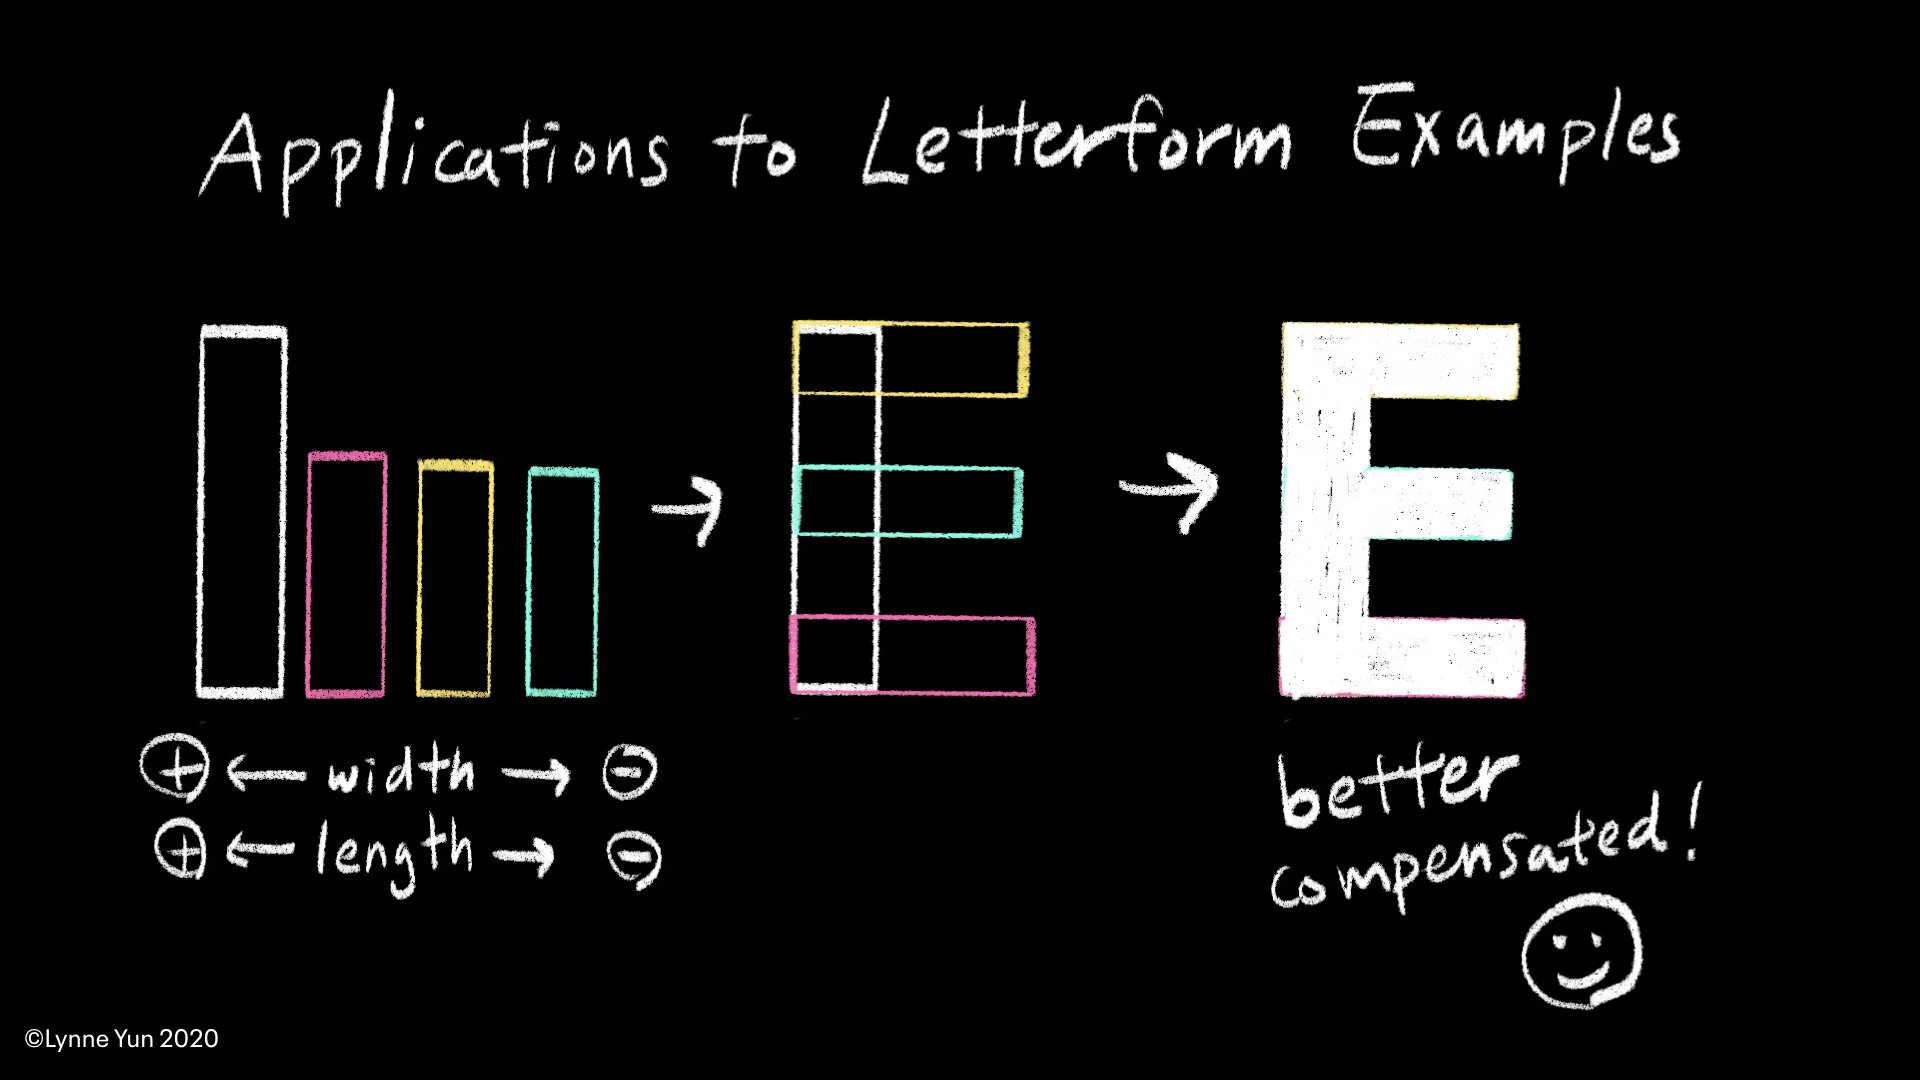 Applications to Letterform Examples
⊕ ← width → ⊖
⊕ ← length → ⊖
better
compensated!
©Lynne Yun 2020